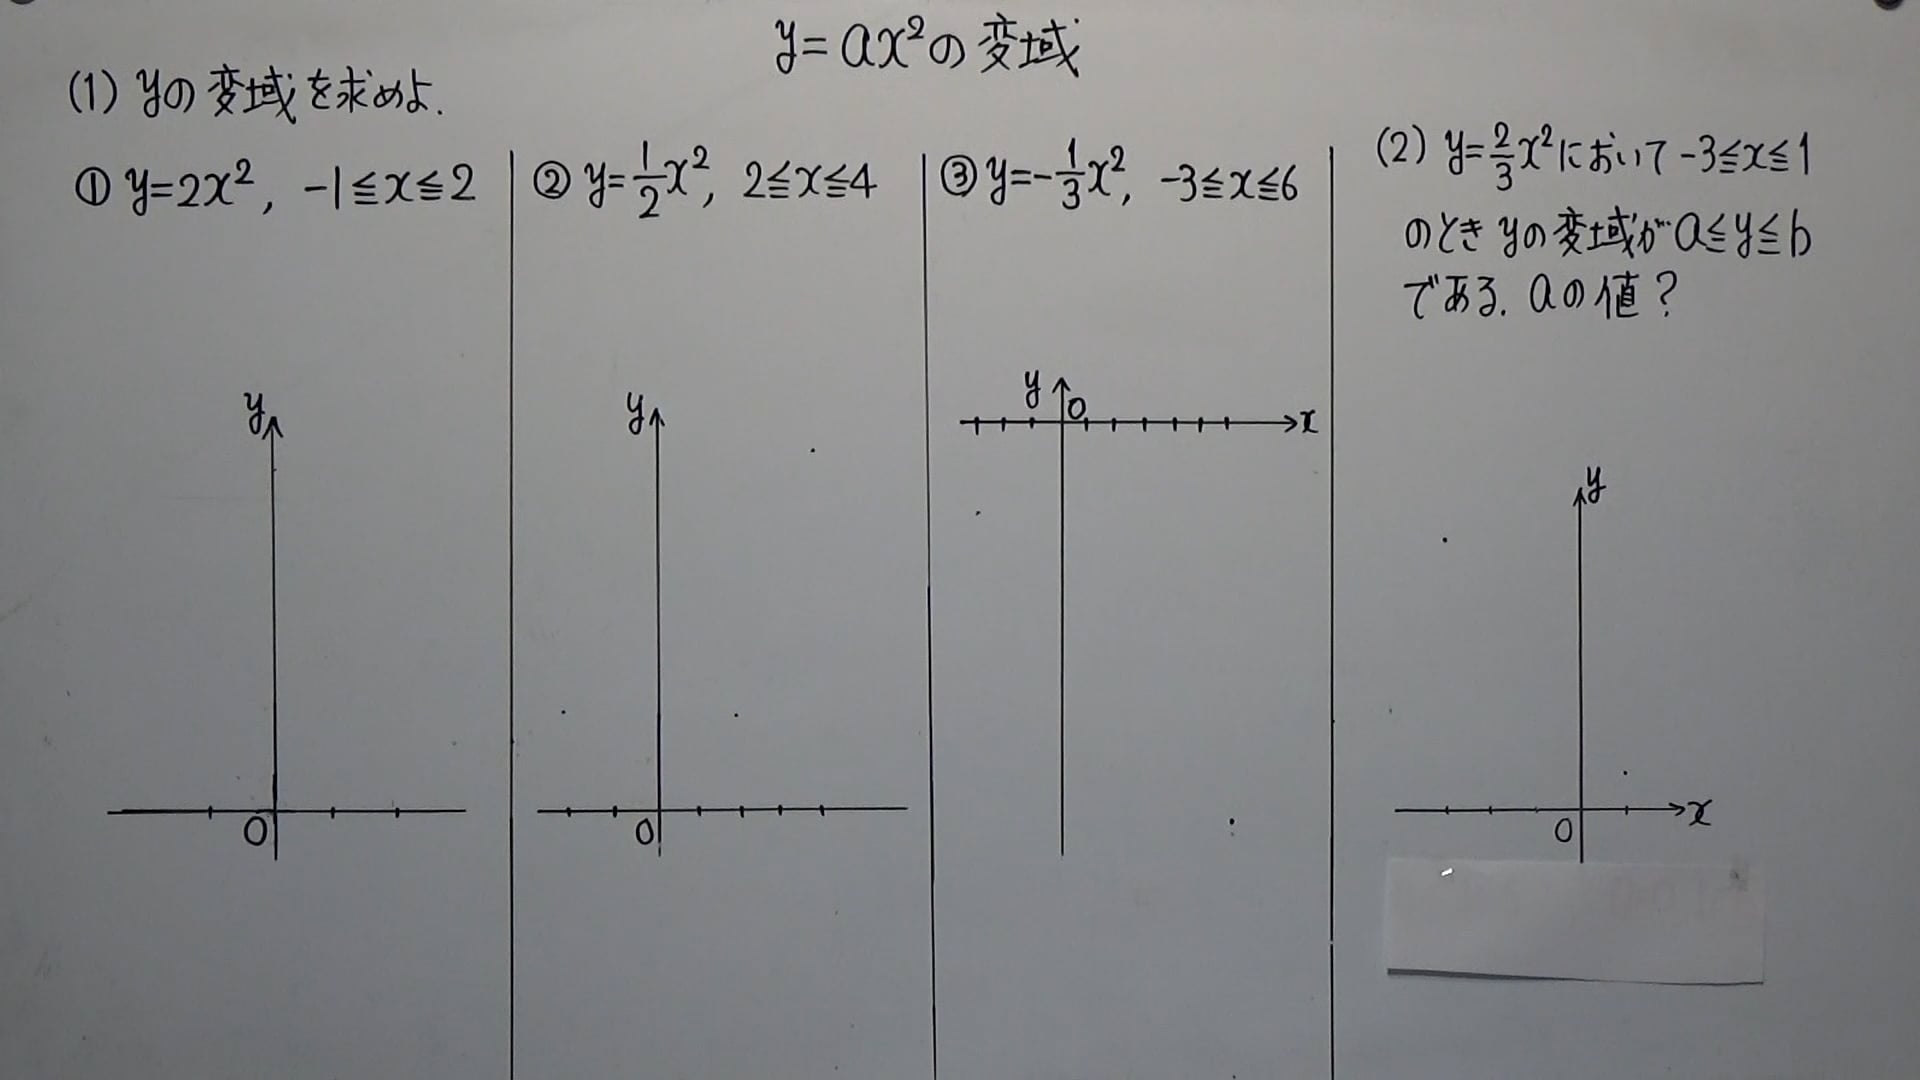 y=ax²の変域
(1) yの変域を求めよ.
① y=2x², -1≦x≦2
② y=1/2x², 2≦x≦4
③ y=-1/3x², -3≦x≦6
(2) y=2/3x²において -3≦x≦1
のとき yの変域が a≦y≦b
である. aの値?
y
O
y
O
y
O
x
y
O
x